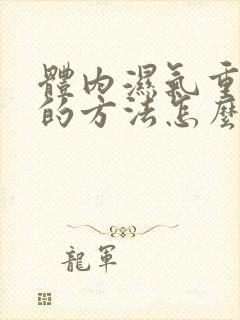 體内濕氣重
的方法怎麼
龍軍